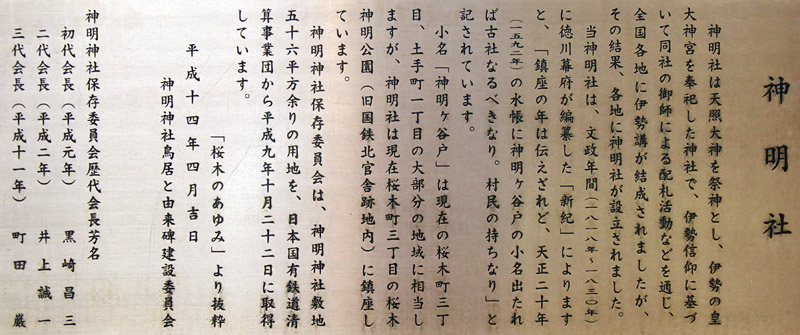 神明社
神明社は天照大神を祭神とし、伊勢の皇
大神宮を奉祀した神社で、伊勢信仰に基づ
いて同社の御師による配札活動などを通じ、
全国各地に伊勢講が結成されましたが、
その結果、各地に神明社が設立されました。
当神明社は、文政年間（一八一八年～一八三〇年）
に徳川幕府が編纂した「新紀」によります
と、「鎮座の年は伝えざれど、天正二十年
（一五九二年）の水帳に神明ヶ谷戸の小名出たれ
ば古社なるべきなり。村民の持ちなり」と
記されています。
小名「神明ヶ谷戸」は現在の桜木町三丁
目、土手町一丁目の大部分の地域に相当し
ますが、神明社は現在桜木町三丁目の桜木
神明公園（旧国鉄北官舎跡地内）に鎮座し
ています。
神明神社保存委員会は、神明神社敷地
五十六平方余りの用地を、日本国有鉄道清
算事業団から平成九年十月二十二日に取得
しています。
「桜木のあゆみ」より抜粋
平成十四年四月吉日
神明神社鳥居と由来碑建設委員会
神明神社保存委員会歴代会長芳名
初代会長（平成元年）　黒崎昌三
二代会長（平成二年）　井上誠一
三代会長（平成十一年）　町田　巌